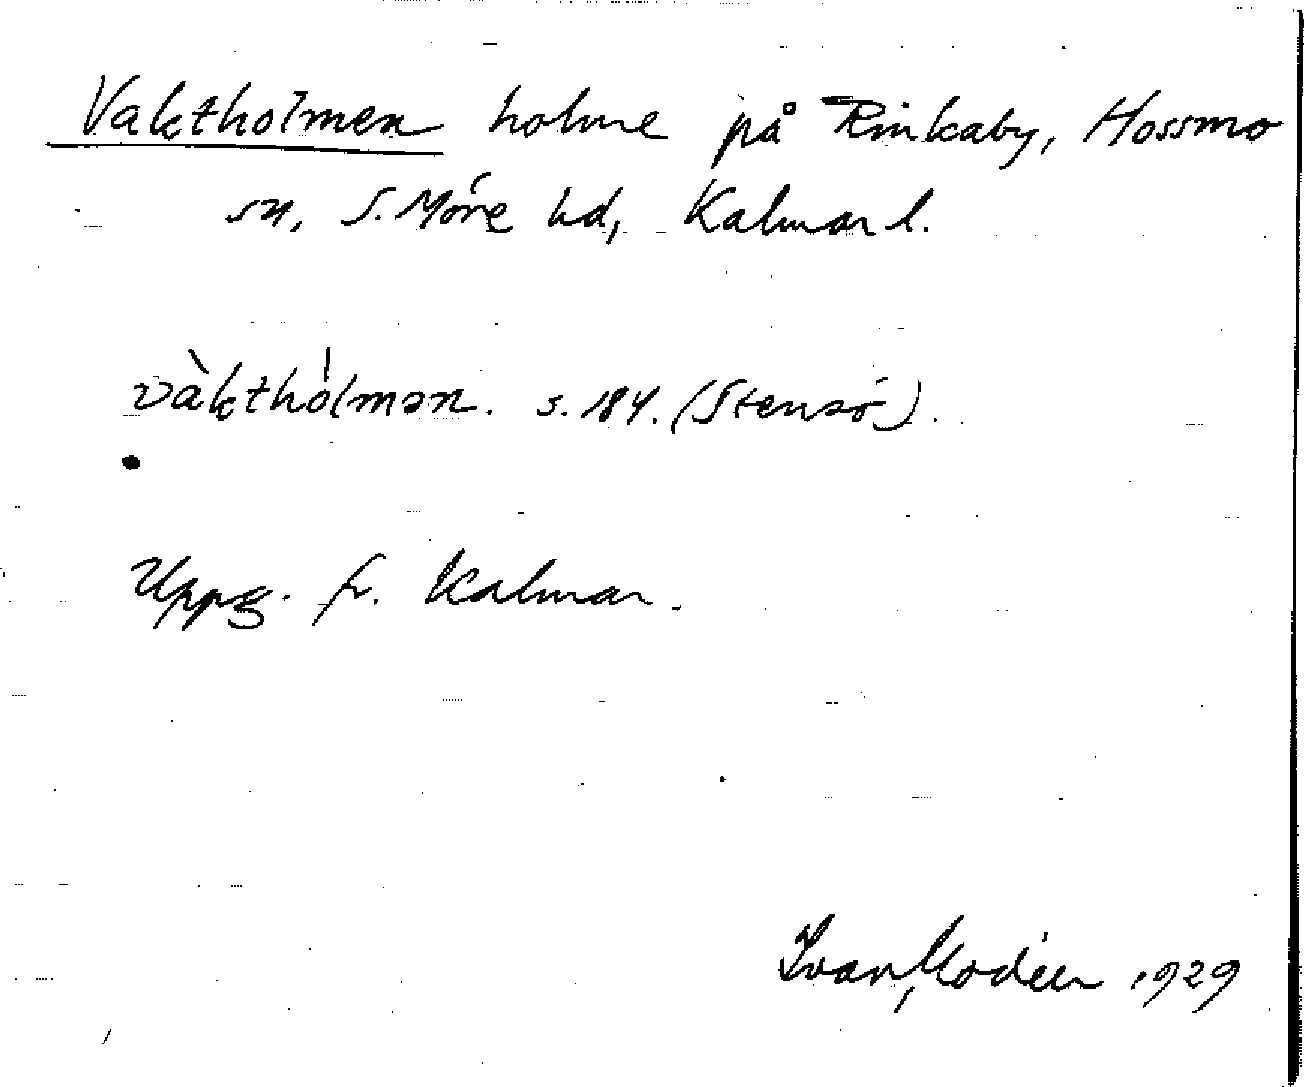 Vaktholmen holme på Rinkaby, Hossmo
sn, S. Möre hd, Kalmar l.
vàkthólmən. s. 184. (Stensö).
Uppg. fr. Kalmar.
Ivan Modéer 1929